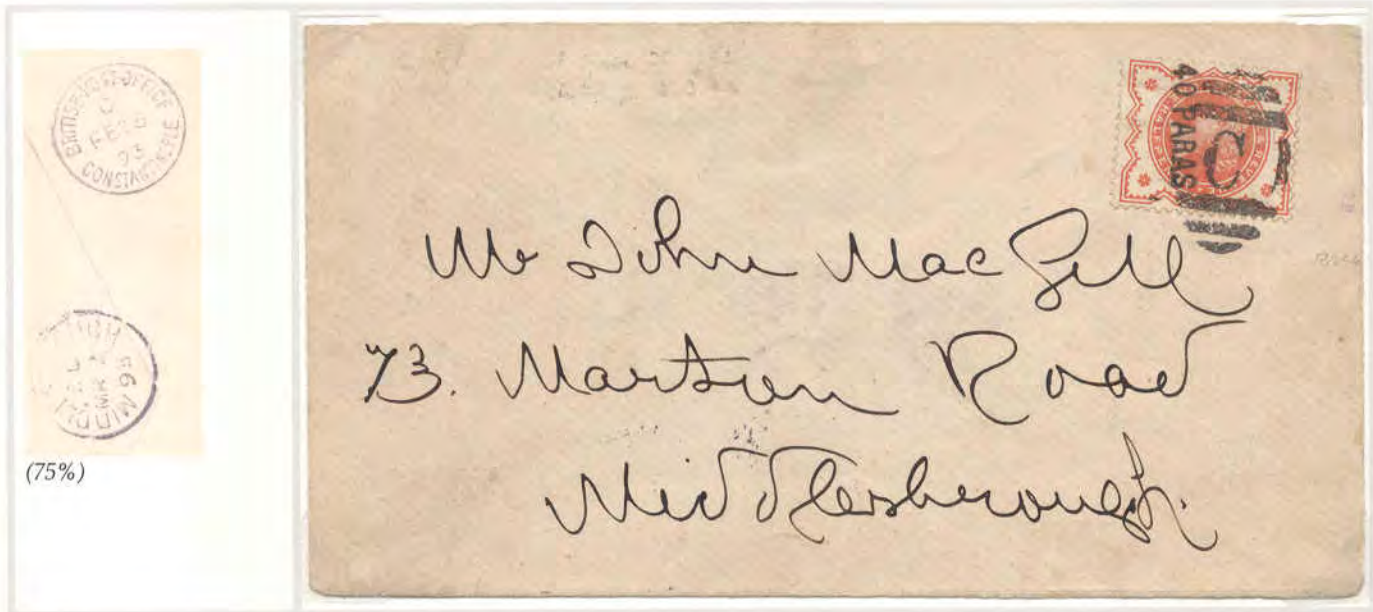 BRITISH POST OFFICE
CONSTANTINOPLE
C
FE 26
93
(75%)
40 PARAS
C
Mr John MacGill
73. Marton Road
Middlesborough.